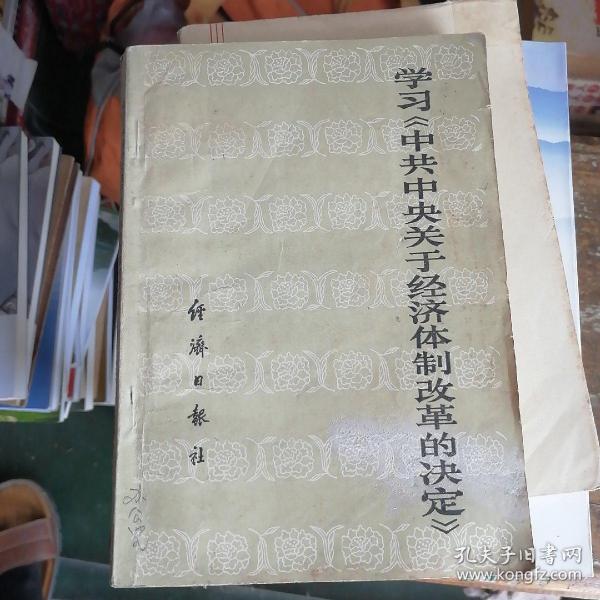 学习《中共中央关于经济体制改革的决定》
经济日報社
办公室
孔夫子旧书网
www.kongfz.com